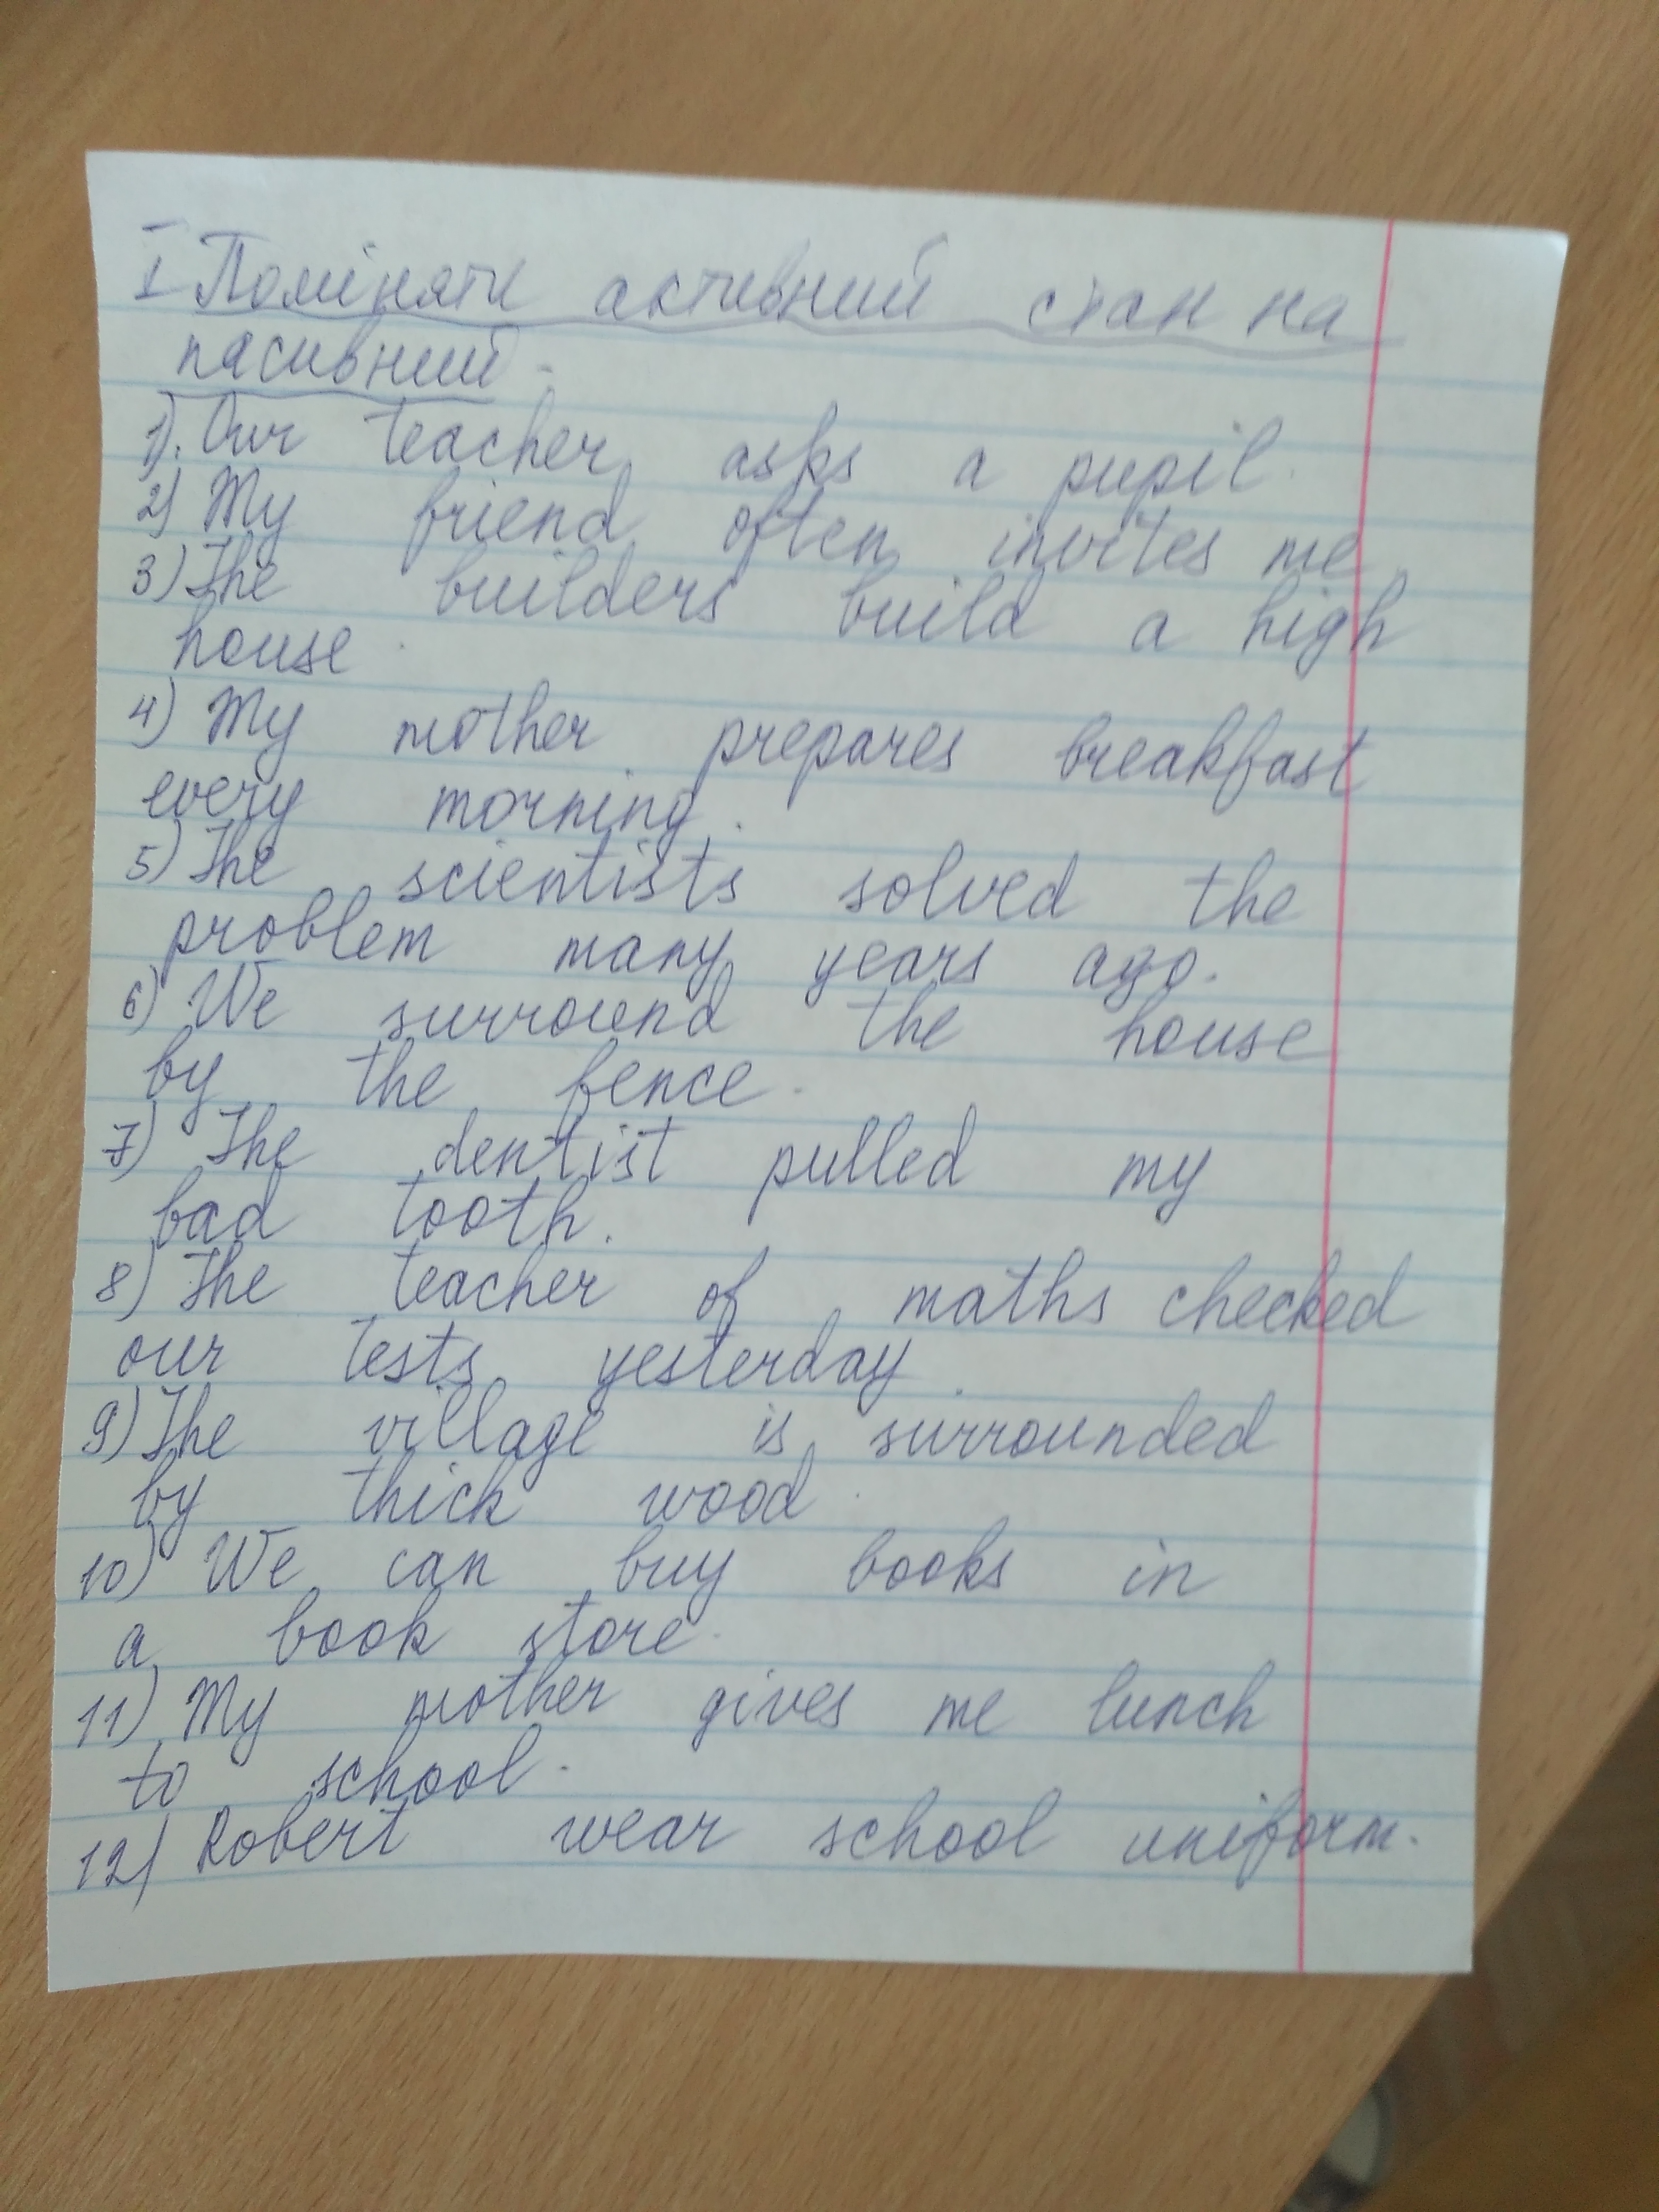 I Поміняти активний стан на
пасивний.
1). Our teacher asks a pupil.
2) My friend often invites me.
3) The builders build a high
house.
4) My mother prepares breakfast
every morning.
5) The scientists solved the
problem many years ago.
6) We surround the house
by the fence.
7) The dentist pulled my
bad tooth.
8) The teacher of maths checked
our tests yesterday.
9) The village is surrounded
by thick wood.
10) We can buy books in
a book store.
11) My mother gives me lunch
to school.
12) Robert wear school uniform.